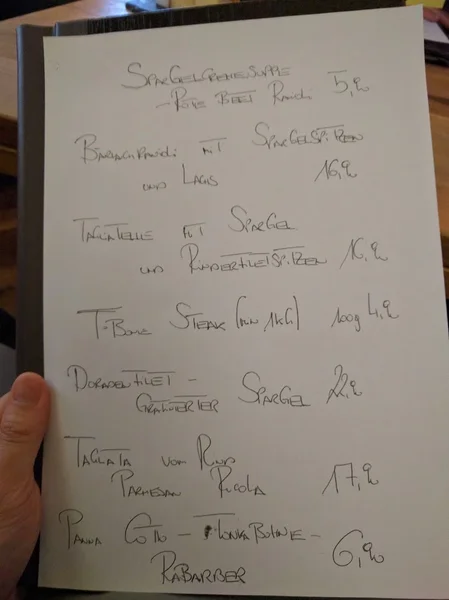 Spargelcremesuppe
- Rote Beet Ravioli 5,90
mit Spargelspitzen
und Lachs 16,90
Tagliatelle mit Spargel
und Rinderfiletspitzen 16,90
T-Bone Steak (min 1kg) 100g 4,90
Doradenfilet -
Gratinierter Spargel 22,90
Tagliata vom Rind
Parmesan Rucola 17,90
Panna Cotta - Tonkabohne -
Rabarber 6,90